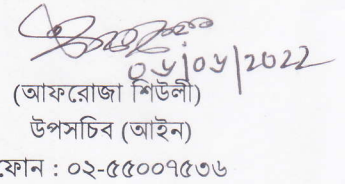 ০৬/০৬/2022
(আফরোজা শিউলী)
উপসচিব (আইন)
ফোন : ০২-৫৫০০৭৫৩৬